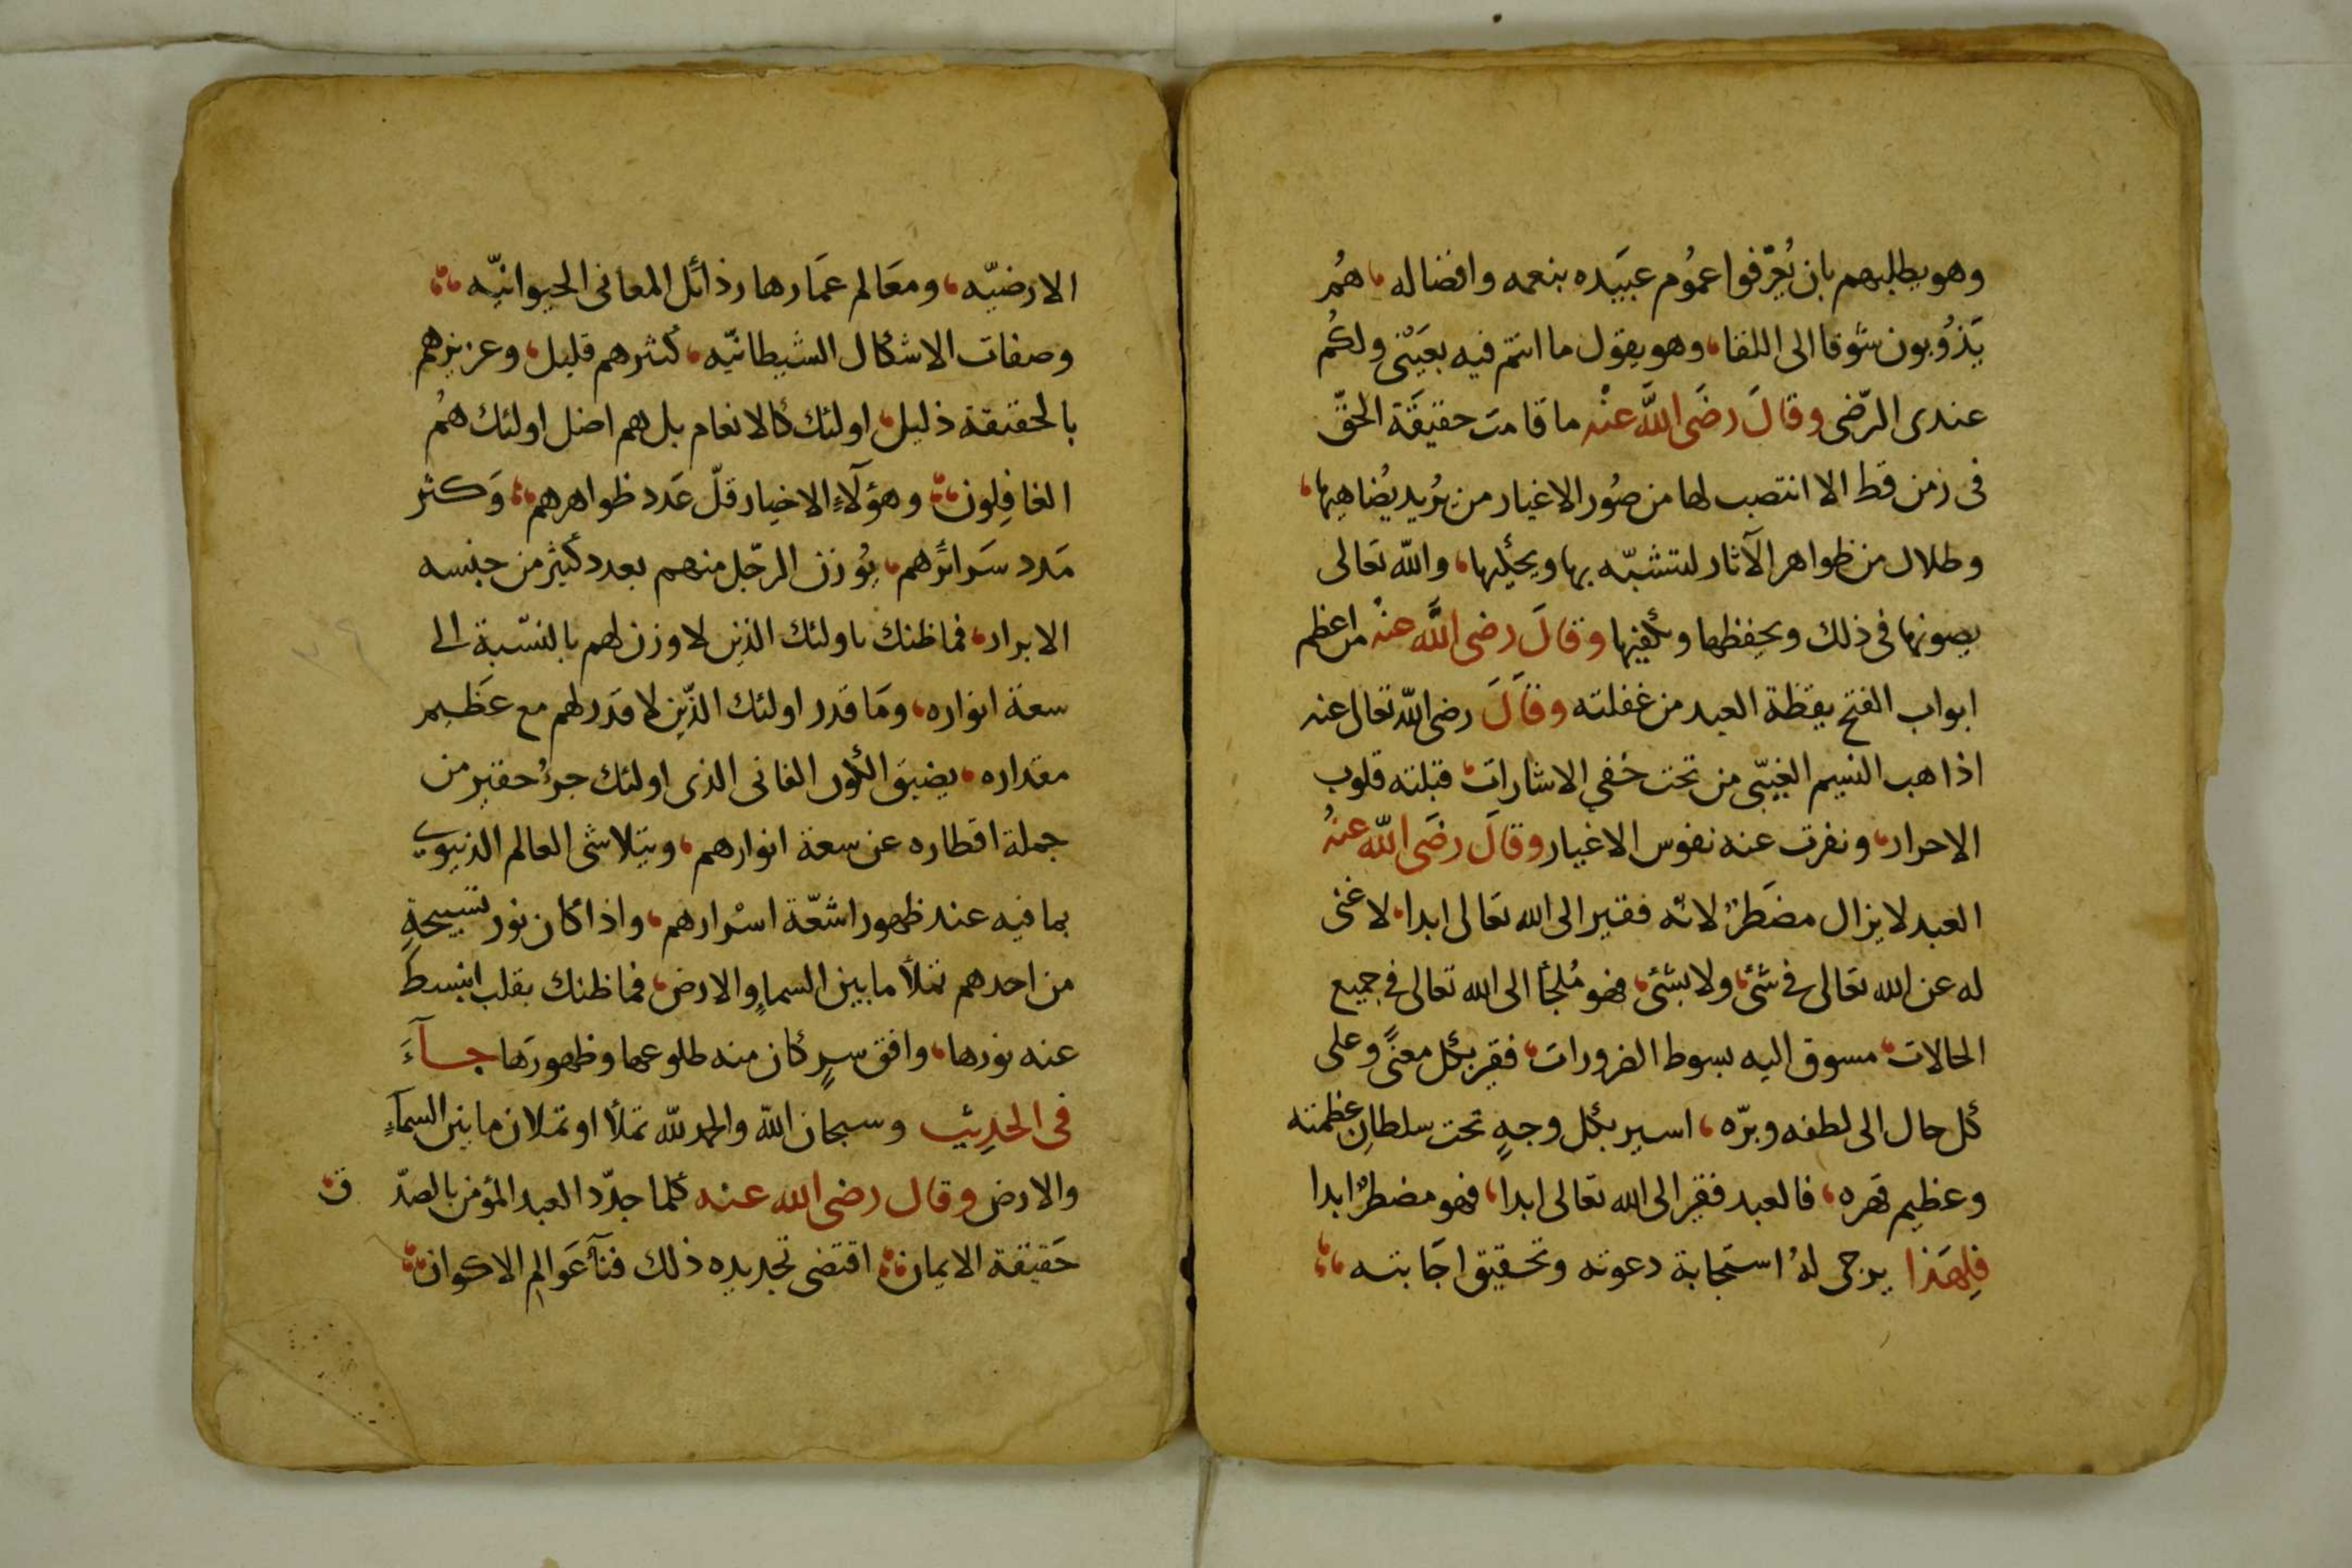 وهو يطلبهم بان يُعَرِّفوا عمُوم عبَيده بنعمه وافضاله، هُم
يَذوُبون شوقا الى اللقا، وهو يقول ما انتم فيه بعَيْنى ولكُم
عندى الرّضى وقالَ رضَى اللَّه عنْه ما قامت حقيقَة الحَقّ
فى زمن قط الا انتصب لها من صُور الاغيار من يُريد يُضاهيها،
وطلال من ظواهر الآثار لتتشبّه بها ويحكيها، والله تعَالى
يصونها فى ذلك ويحفظها ويكفيها وقالَ رضى اللَّه عنْه من اعظم
ابواب الفتح يقظة العبد من غفلته وقالَ رضى اللّه تعَالى عنه
اذا هب النسيم الغيبّى من تحت خفي الاشارات، قبلته قلوب
الاحرار، ونفرت عنه نفوس الاغيار وقالَ رضَى اللّه عنهُ
العبد لا يزال مضَطرٌ لانّه فقير الى الله تعَالى ابدا، لا غنى
له عن الله تعَالى فى شئ، ولا بشئ، فهو مُلجأ الى الله تعَالى فى جميع
الحالات، مسوق اليه بسوط الضرورات، فقير بكل معنًى وعلى
كل حال الى لطفه وبرّه، اسير بكل وجهٍ تحت سلطانِ عظمته
وعظيم قهره، فالعبد فقير الى الله تعالى ابدا، فهو مضطرٌ ابدا
فلِهَذا يرجى لهُ استجَابة دعوته وتحقيق اجَابته،
الارضيّه، ومعَالم عمَارها رذائل المعانى الحيوانيّه
وصفات الاشكال الشيطانيّه، كثرهم قليل، وعزيزهم
بالحقيقة ذليل، اولئك كالانعام بل هم اضل اولئك همُ
الغافِلون، وهؤلآءِ الاخيار قلّ عَدد ظواهرهم، وَكثر
مَدد سَرائرهم، يُوزن الرجّل منهم بعدد كثير من جنسه
الابرار، فما ظنك باولئك الذين لا وزن لهم بالنسّبة الى
سعة انواره، ومَا قدر اولئك الذّين لا قدَر لهم مع عَظيم
مقداره، يضيق الكون الفانى الذى اولئك جزءُ حقير من
جملة اقطاره عن سعة انوارهم، ويتلاشى العالم الدنيوي
بما فيه عند ظهور اشعّة اسْرارهم، واذا كان نور تسبيحةٍ
من احدهم تملأ ما بين السماءِ والارض، فما ظنك بقلب انبسط
عنه نورها، وافق سرٍ كان منه طلوعها وظهورَها جآءَ
فى الحدِيثِ وسبحان اللّه والحمد للّه تملأ او تملان ما بين السمآءِ
والارض وقال رضى الله عنه كلما جدّد العبد المؤمن بالصدّ ق
حَقيقة الايمان، اقتضى تجديده ذلك فنآءَ عَوالم الاكوان